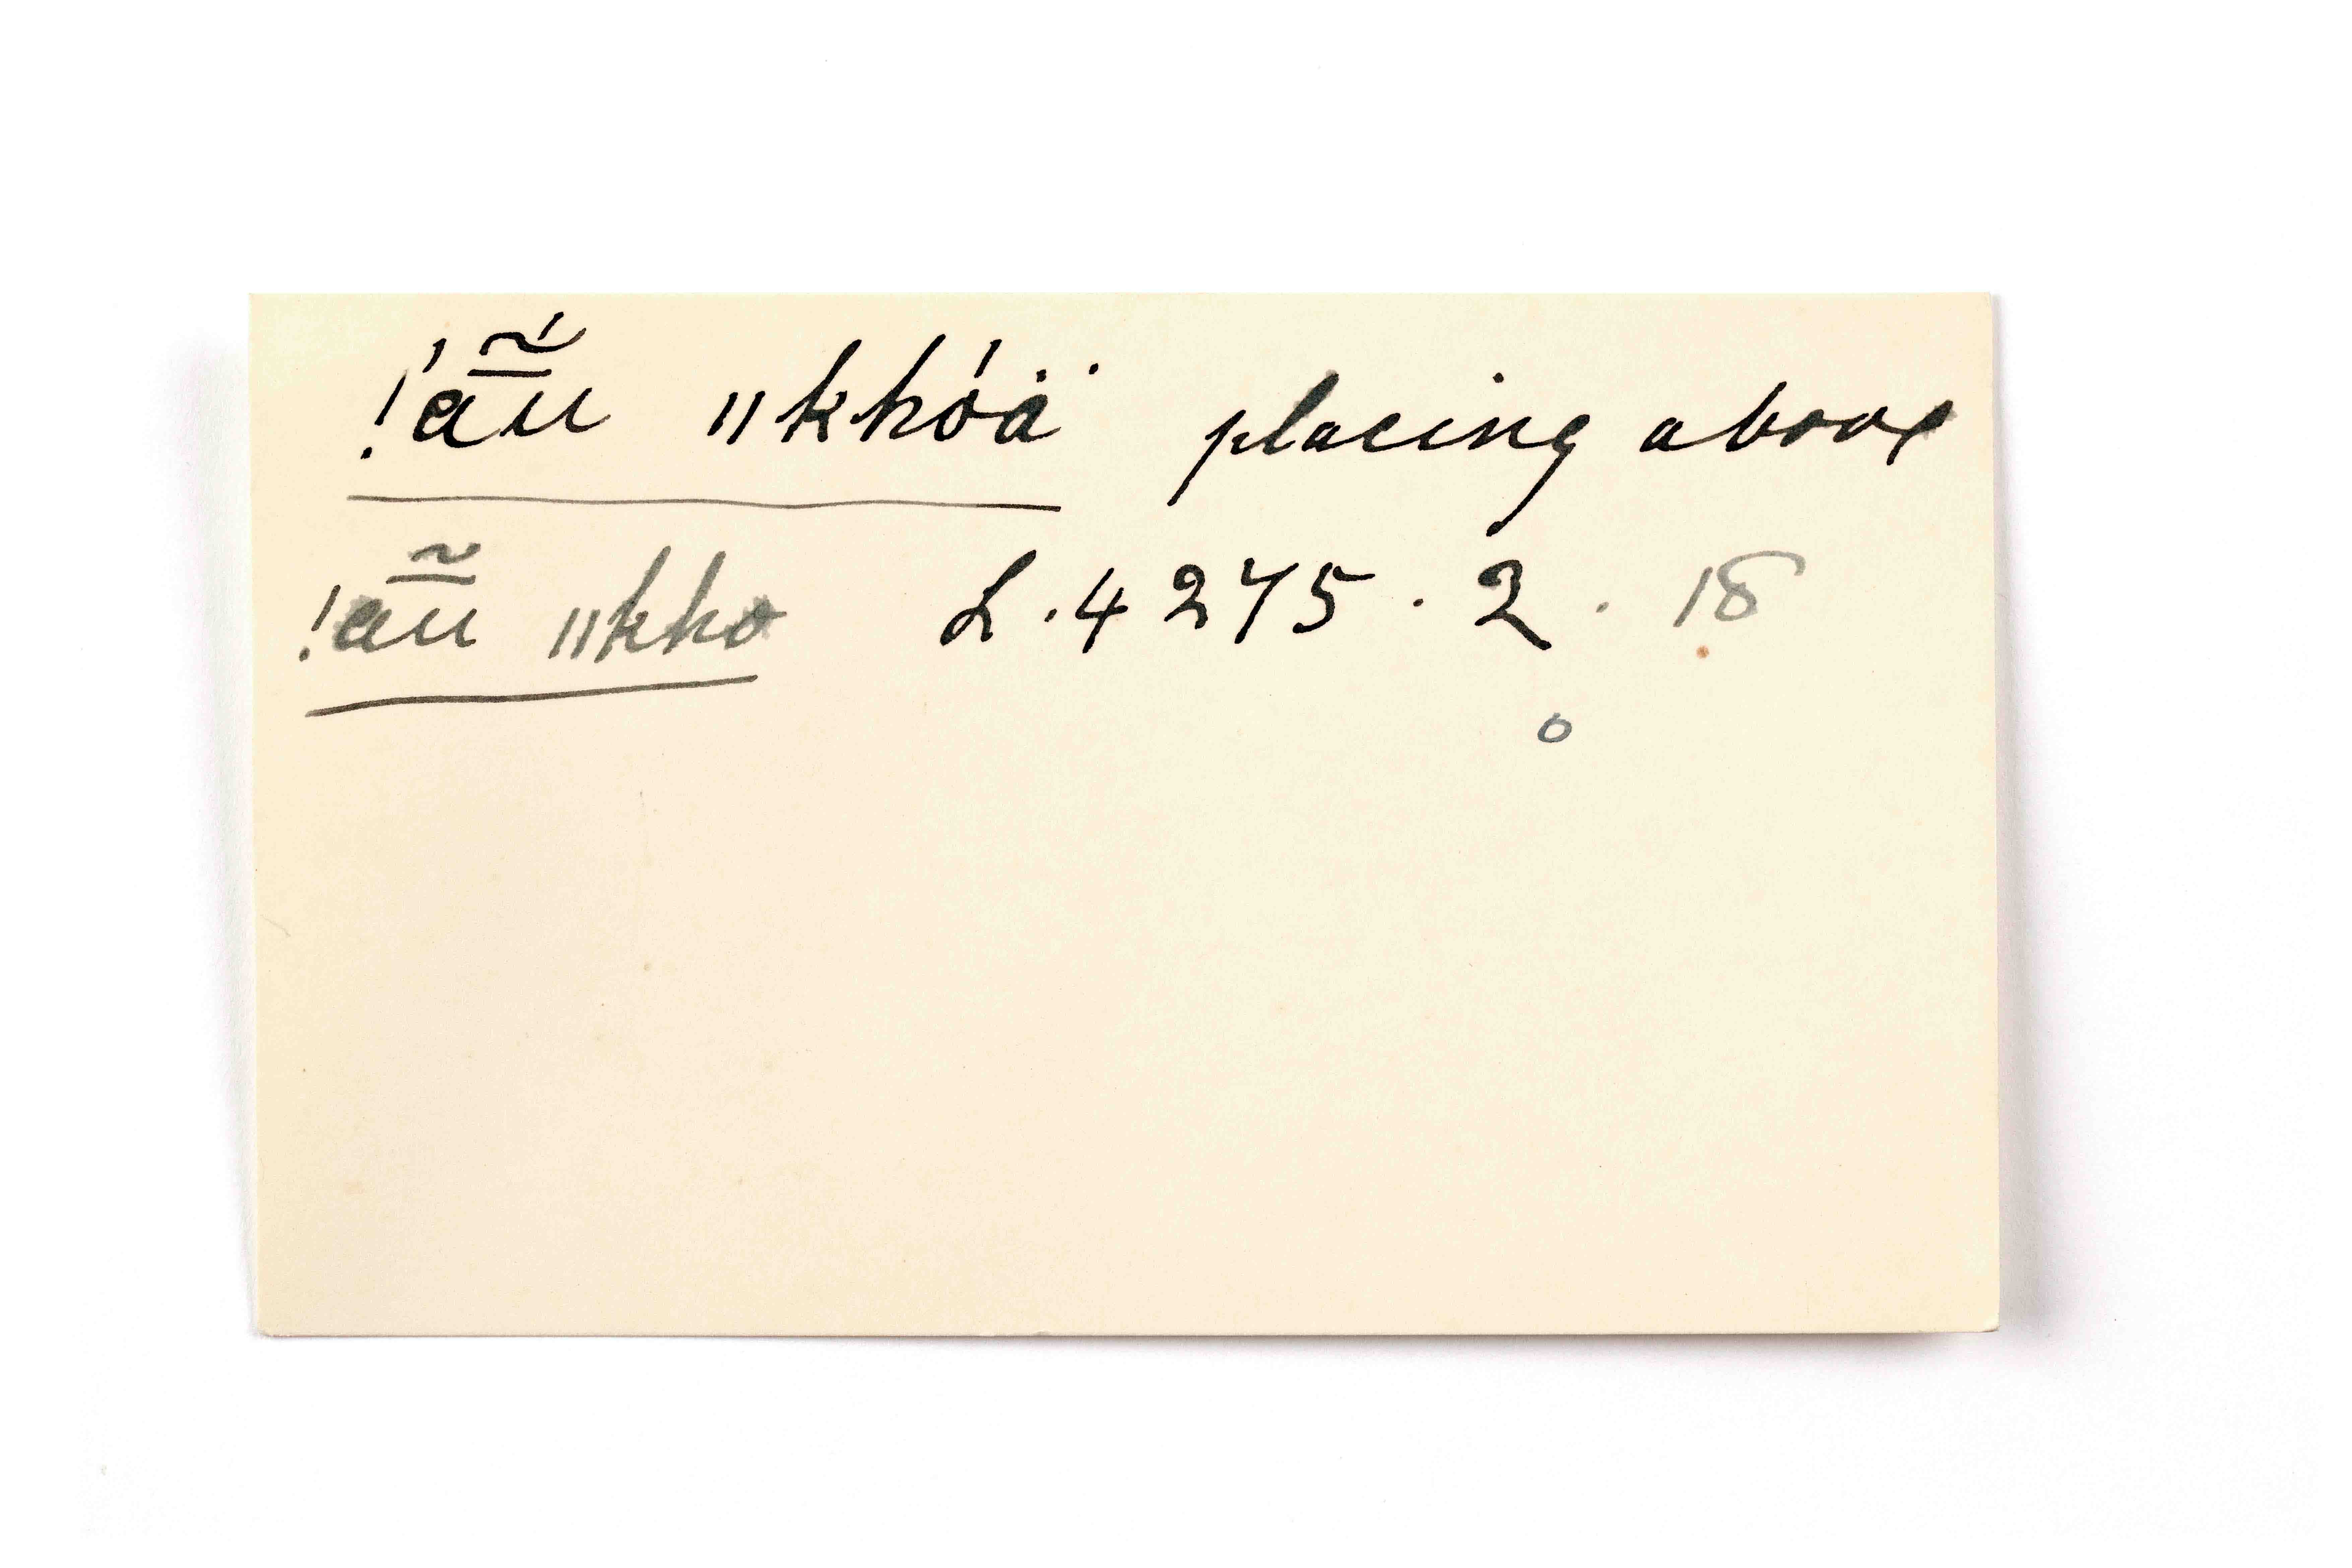 !ā́ũ̄́ ǁkhóä placing above
!āũ̄ ǁkho L.4275.2. 18
o